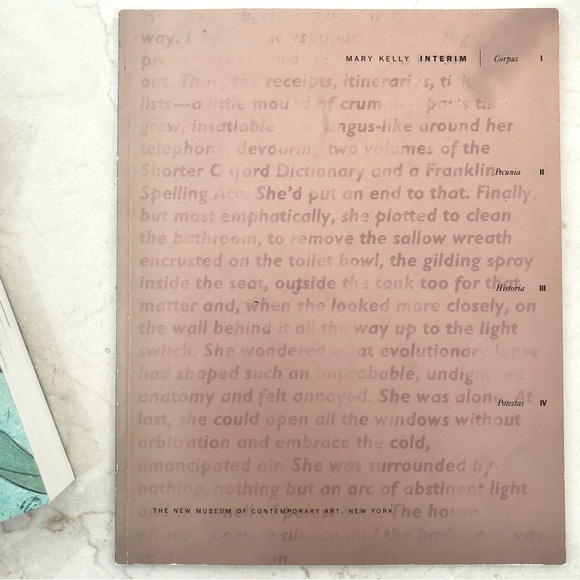 MARY KELLY INTERIM Corpus I
way. I
out. the receipts, itineraries,
lists—a little mound of
grew, insatiable fungus-like around her
telephone, devouring two volumes of the
Shorter Oxford Dictionary and a Franklin
Pecunia II
Spelling Ace. She'd put an end to that. Finally,
but most emphatically, she plotted to clean
the bathroom, to remove the sallow wreath
encrusted on the toilet bowl, the gilding spray
inside the seat, outside the tank too for that
Historia III
matter and, when she looked more closely, on
the wall behind it all the way up to the light
switch. She wondered what evolutionary lapse
had shaped such an improbable, undignified
anatomy and felt annoyed. She was alone. At
Potestas IV
last, she could open all the windows without
arbitration and embrace the cold,
emancipated air. She was surrounded by
nothing, nothing but an arc of abstinent light
THE NEW MUSEUM OF CONTEMPORARY ART, NEW YORK
The house
silence and the was